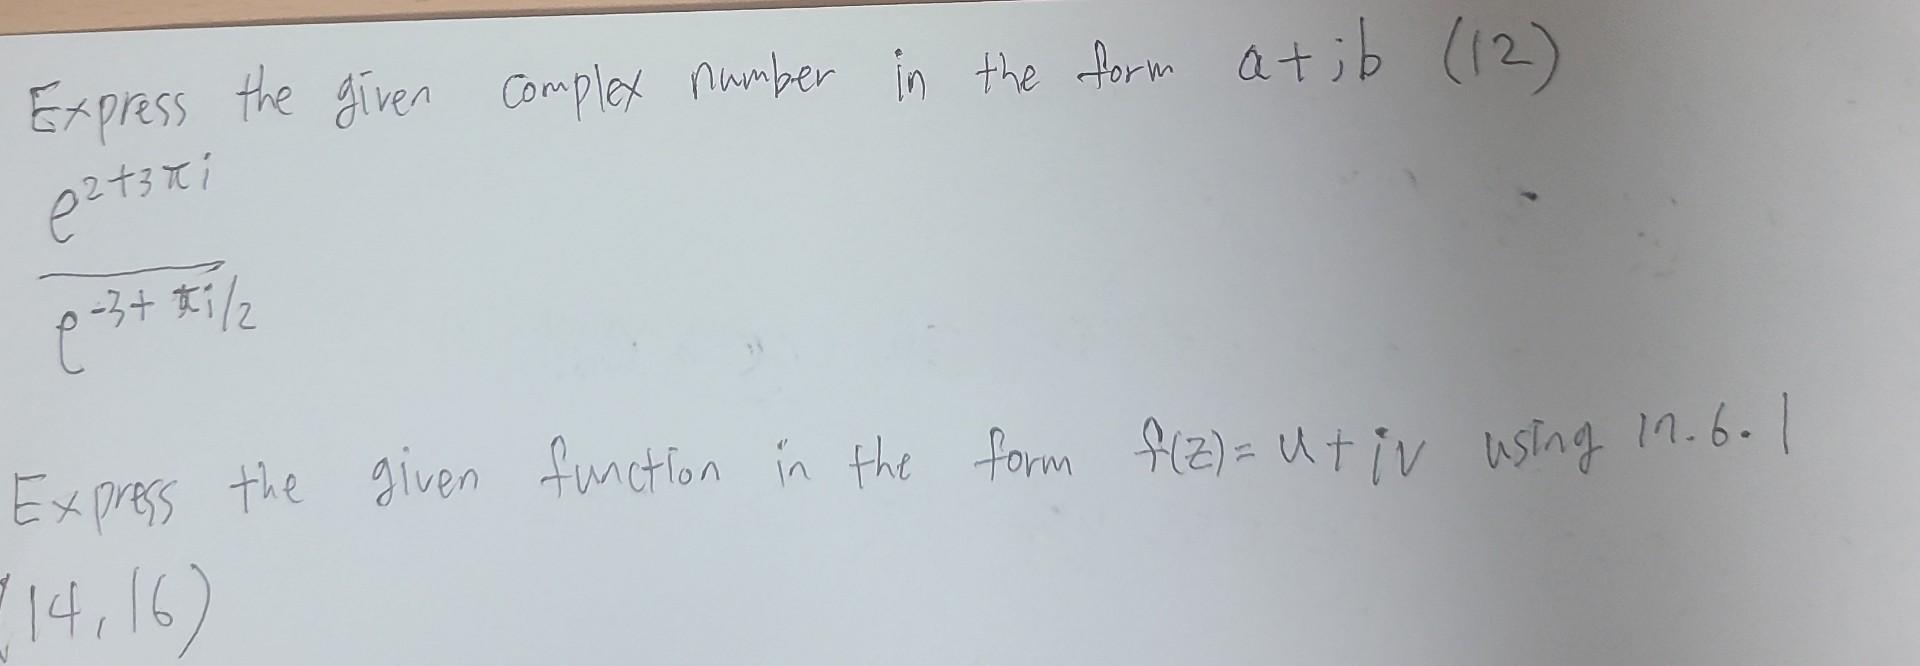 Express the given complex number in the form a+ib (12)
e^2+3πi
e^-3+πi/2
Express the given function in the form f(z)=u+iv using 17.6.1
(14,16)